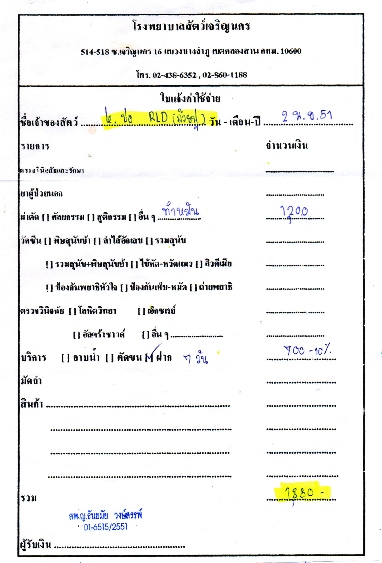 โรงพยาบาลสัตว์เจริญนคร
514-518 ซ.เจริญนคร 16 แขวงบางลำภู เขตคลองสาน กทม. 10600
โทร. 02-438-6352 , 02-860-1188
ใบแจ้งค่าใช้จ่าย
ชื่อเจ้าของสัตว์ RLD วัน - เดือน-ปี 2 พ.ย. 51
รายการ จำนวนเงิน
ตรวจวินิจฉัยและรักษา
ยาผู้ป่วยนอก
ผ่าตัด [ ] ศัลยกรรม [ ] สูติกรรม [ ] อื่น ๆ ทำหมัน 1200
วัคซีน [ ] พิษสุนัขบ้า [ ] ลำไส้อักเสบ [ ] รวมสุนัข
[ ] รวมสุนัข+พิษสุนัขบ้า [ ] ไข้หัด-หวัดแมว [ ] ลิวคีเมีย
[ ] ป้องกันพยาธิหัวใจ [ ] ป้องกันเห็บ-หมัด [ ] ถ่ายพยาธิ
ตรวจวินิจฉัย [ ] โลหิตวิทยา [ ] เอ็กซเรย์
[ ] อัลตร้าซาวด์ [ ] อื่น ๆ
บริการ [ ] อาบน้ำ [ ] ตัดขน [✓] ฝาก 7 วัน 700 -10%
มัดจำ
สินค้า
รวม 1830 -
01-6515/2551
ผู้รับเงิน